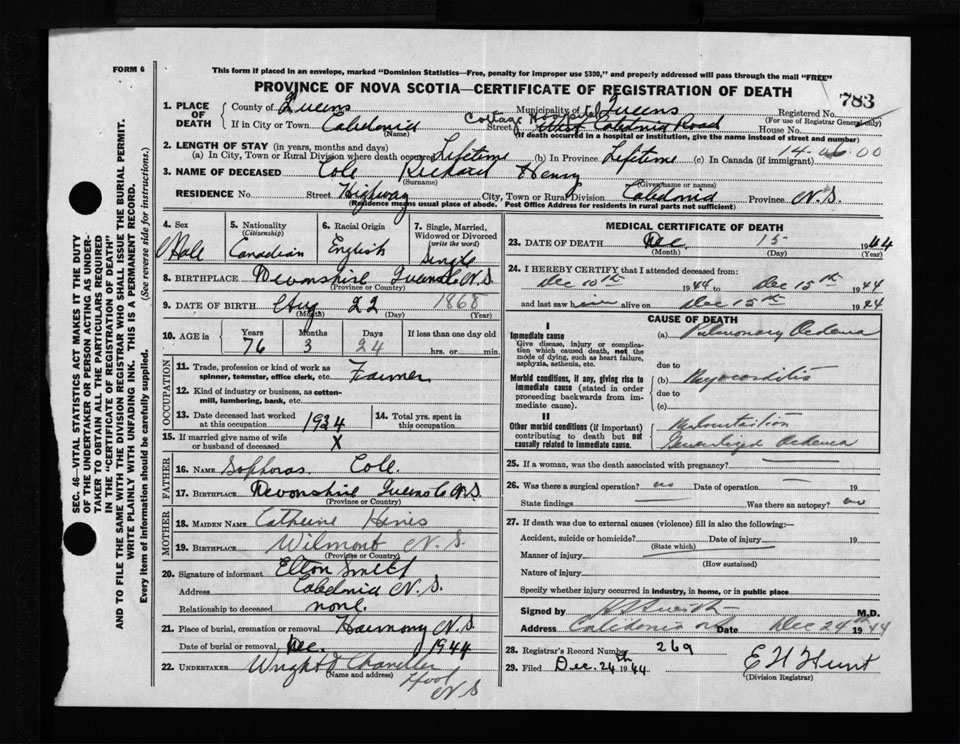 FORM 6
This form if placed in an envelope, marked "Dominion Statistics—Free, penalty for improper use $300," and properly addressed will pass through the mail "FREE"
PROVINCE OF NOVA SCOTIA—CERTIFICATE OF REGISTRATION OF DEATH
783
1. PLACE OF DEATH
County of Queens Municipality of Queens Registered No.
(For use of Registrar General only)
Cottage Hospital
If in City or Town Caledonia Street West Caledonia Road House No.
(Name) (If death occurred in a hospital or institution, give the name instead of street and number)
2. LENGTH OF STAY (in years, months and days) 14-
(a) In City, Town or Rural Division where death occurred Lifetime (b) In Province Lifetime (c) In Canada (if immigrant)
3. NAME OF DECEASED Cole Richard Henry
(Surname) (Given name or names)
RESIDENCE No. Street Highway City, Town or Rural Division Caledonia Province N.S.
(Residence means usual place of abode. Post Office Address for residents in rural parts not sufficient)
4. Sex Male
5. Nationality (Citizenship) Canadian
6. Racial Origin English
7. Single, Married, Widowed or Divorced (write the word) Single
8. BIRTHPLACE Devonshire Queens Co N.S.
(Province or Country)
9. DATE OF BIRTH Aug 22 1868
(Month) (Day) (Year)
10. AGE in Years Months Days If less than one day old
76 3 24 hrs. or min.
OCCUPATION
11. Trade, profession or kind of work as spinner, teamster, office clerk, etc. Farmer
12. Kind of industry or business, as cotton-mill, lumbering, bank, etc.
13. Date deceased last worked at this occupation 1934
14. Total yrs. spent in this occupation
15. If married give name of wife or husband of deceased X
FATHER
16. NAME Cole.
17. BIRTHPLACE Devonshire Queens Co N.S.
(Province or Country)
MOTHER
18. MAIDEN NAME Catherine
19. BIRTHPLACE Wilmont N.S.
(Province or Country)
20. Signature of informant Elton Smith
Address Caledonia N.S.
Relationship to deceased none.
21. Place of burial, cremation or removal Harmony N.S.
Date of burial or removal Dec. 1944
22. UNDERTAKER Wright Chandler
(Name and address)
N.S
MEDICAL CERTIFICATE OF DEATH
23. DATE OF DEATH Dec. 15 1944
(Month) (Day) (Year)
24. I HEREBY CERTIFY that I attended deceased from:
Dec 10th 1944 to Dec 15th 1944
and last saw him alive on Dec 15th 1944
CAUSE OF DEATH
I
Immediate cause
Give disease, injury or complication which caused death, not the mode of dying, such as heart failure, asphyxia, asthenia, etc.
(a) Pulmonary Oedema
due to
Morbid conditions, if any, giving rise to immediate cause (stated in order proceeding backwards from immediate cause).
(b) Myocarditis
due to
(c)
II
Other morbid conditions (if important) contributing to death but not causally related to immediate cause.
Malnutrition
Generalized Oedema
25. If a woman, was the death associated with pregnancy?
26. Was there a surgical operation? no Date of operation 19
State findings Was there an autopsy? no
27. If death was due to external causes (violence) fill in also the following:—
Accident, suicide or homicide? Date of injury 19
(State which)
Manner of injury
(How sustained)
Nature of injury
Specify whether injury occurred in industry, in home, or in public place
Signed by M.D.
Address Calidonia NS Date Dec 24th 1944
28. Registrar's Record Number 269
29. Filed Dec. 24th 1944 E H Hunt
(Division Registrar)
SEC. 46—VITAL STATISTICS ACT MAKES IT THE DUTY
OF THE UNDERTAKER OR PERSON ACTING AS UNDER-
TAKER TO OBTAIN ALL THE PARTICULARS REQUIRED
IN THE "CERTIFICATE OF REGISTRATION OF DEATH"
AND TO FILE THE SAME WITH THE DIVISION REGISTRAR WHO SHALL ISSUE THE BURIAL PERMIT.
WRITE PLAINLY WITH UNFADING INK. THIS IS A PERMANENT RECORD.
Every item of information should be carefully supplied. (See reverse side for instructions.)